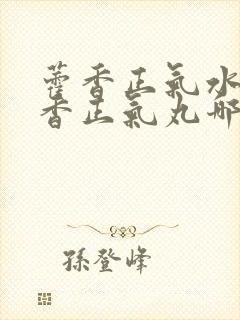 藿香正氣水
香正氣丸哪
孫登峰